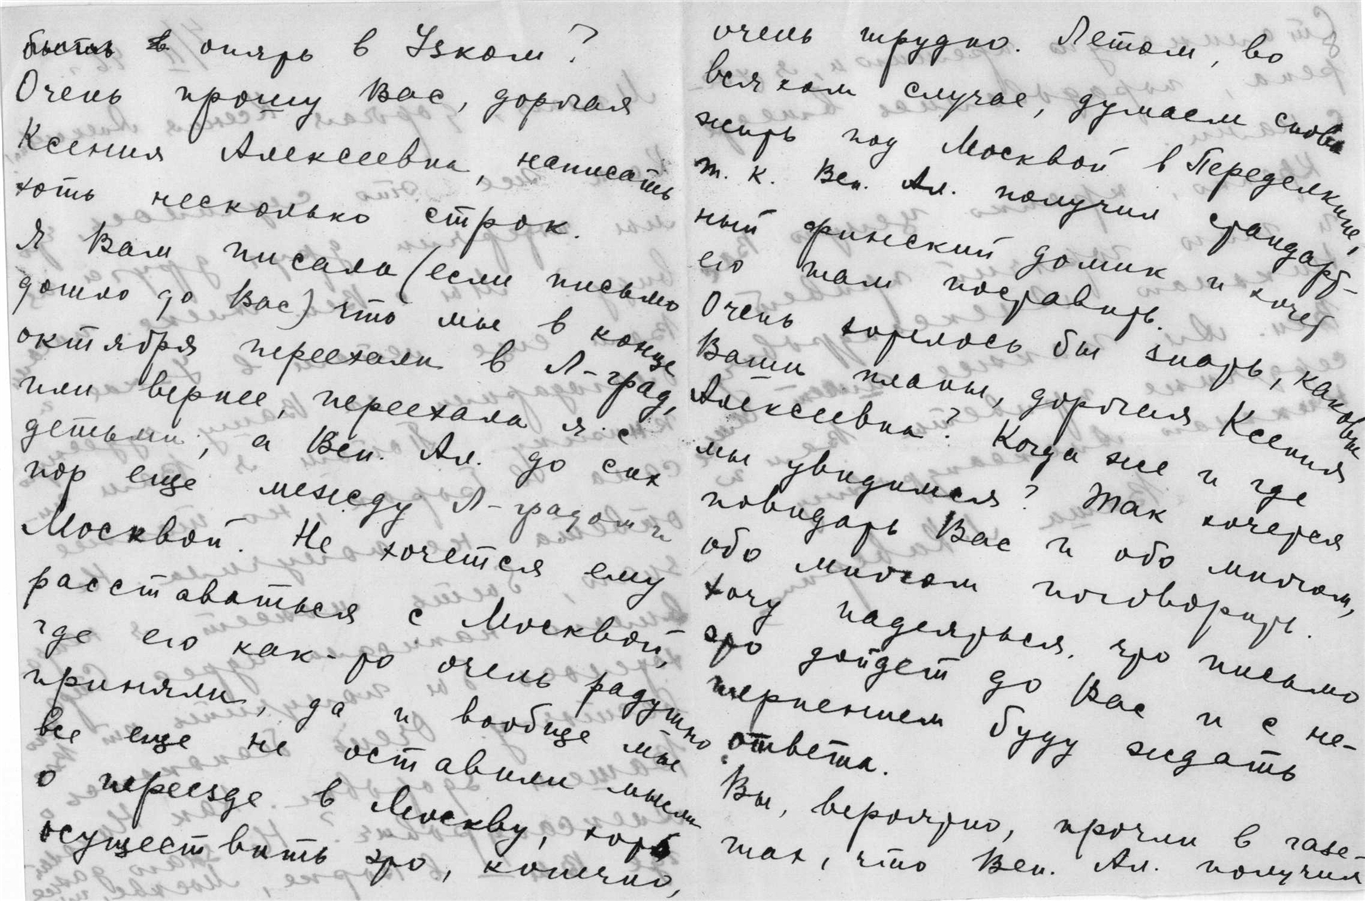 быть в опять в Узком?
Очень прошу Вас, дорогая
Ксения Алексеевна, написать
хоть несколько строк.
Я Вам писала (если письмо
дошло до Вас) что мы в конце
октября переехали в Л-град,
или вернее, переехала я с
детьми, а Вен. Ал. до сих
пор еще между Л-градом и
Москвой. Не хочется ему
расставаться с Москвой,
где его как-то очень радушно
приняли, да и вообще мы
все еще не оставили мысли
о переезде в Москву, хотя
осуществить это, конечно,
очень трудно. Летом, во
всяком случае, думаем снова
жить под Москвой в Переделкине,
т. к. Вен. Ал. получил стандарт-
ный финский домик и хочет
его там поставить.
Очень хотелось бы знать, каковы
Ваши планы, дорогая Ксения
Алексеевна? Когда же и где
мы увидимся? Так хочется
повидать Вас и обо многом,
обо многом поговорить.
Хочу надеяться, что письмо
это дойдет до Вас и с не-
терпением буду ждать
ответа.
Вы, вероятно, прочли в газе-
тах, что Вен. Ал. получил